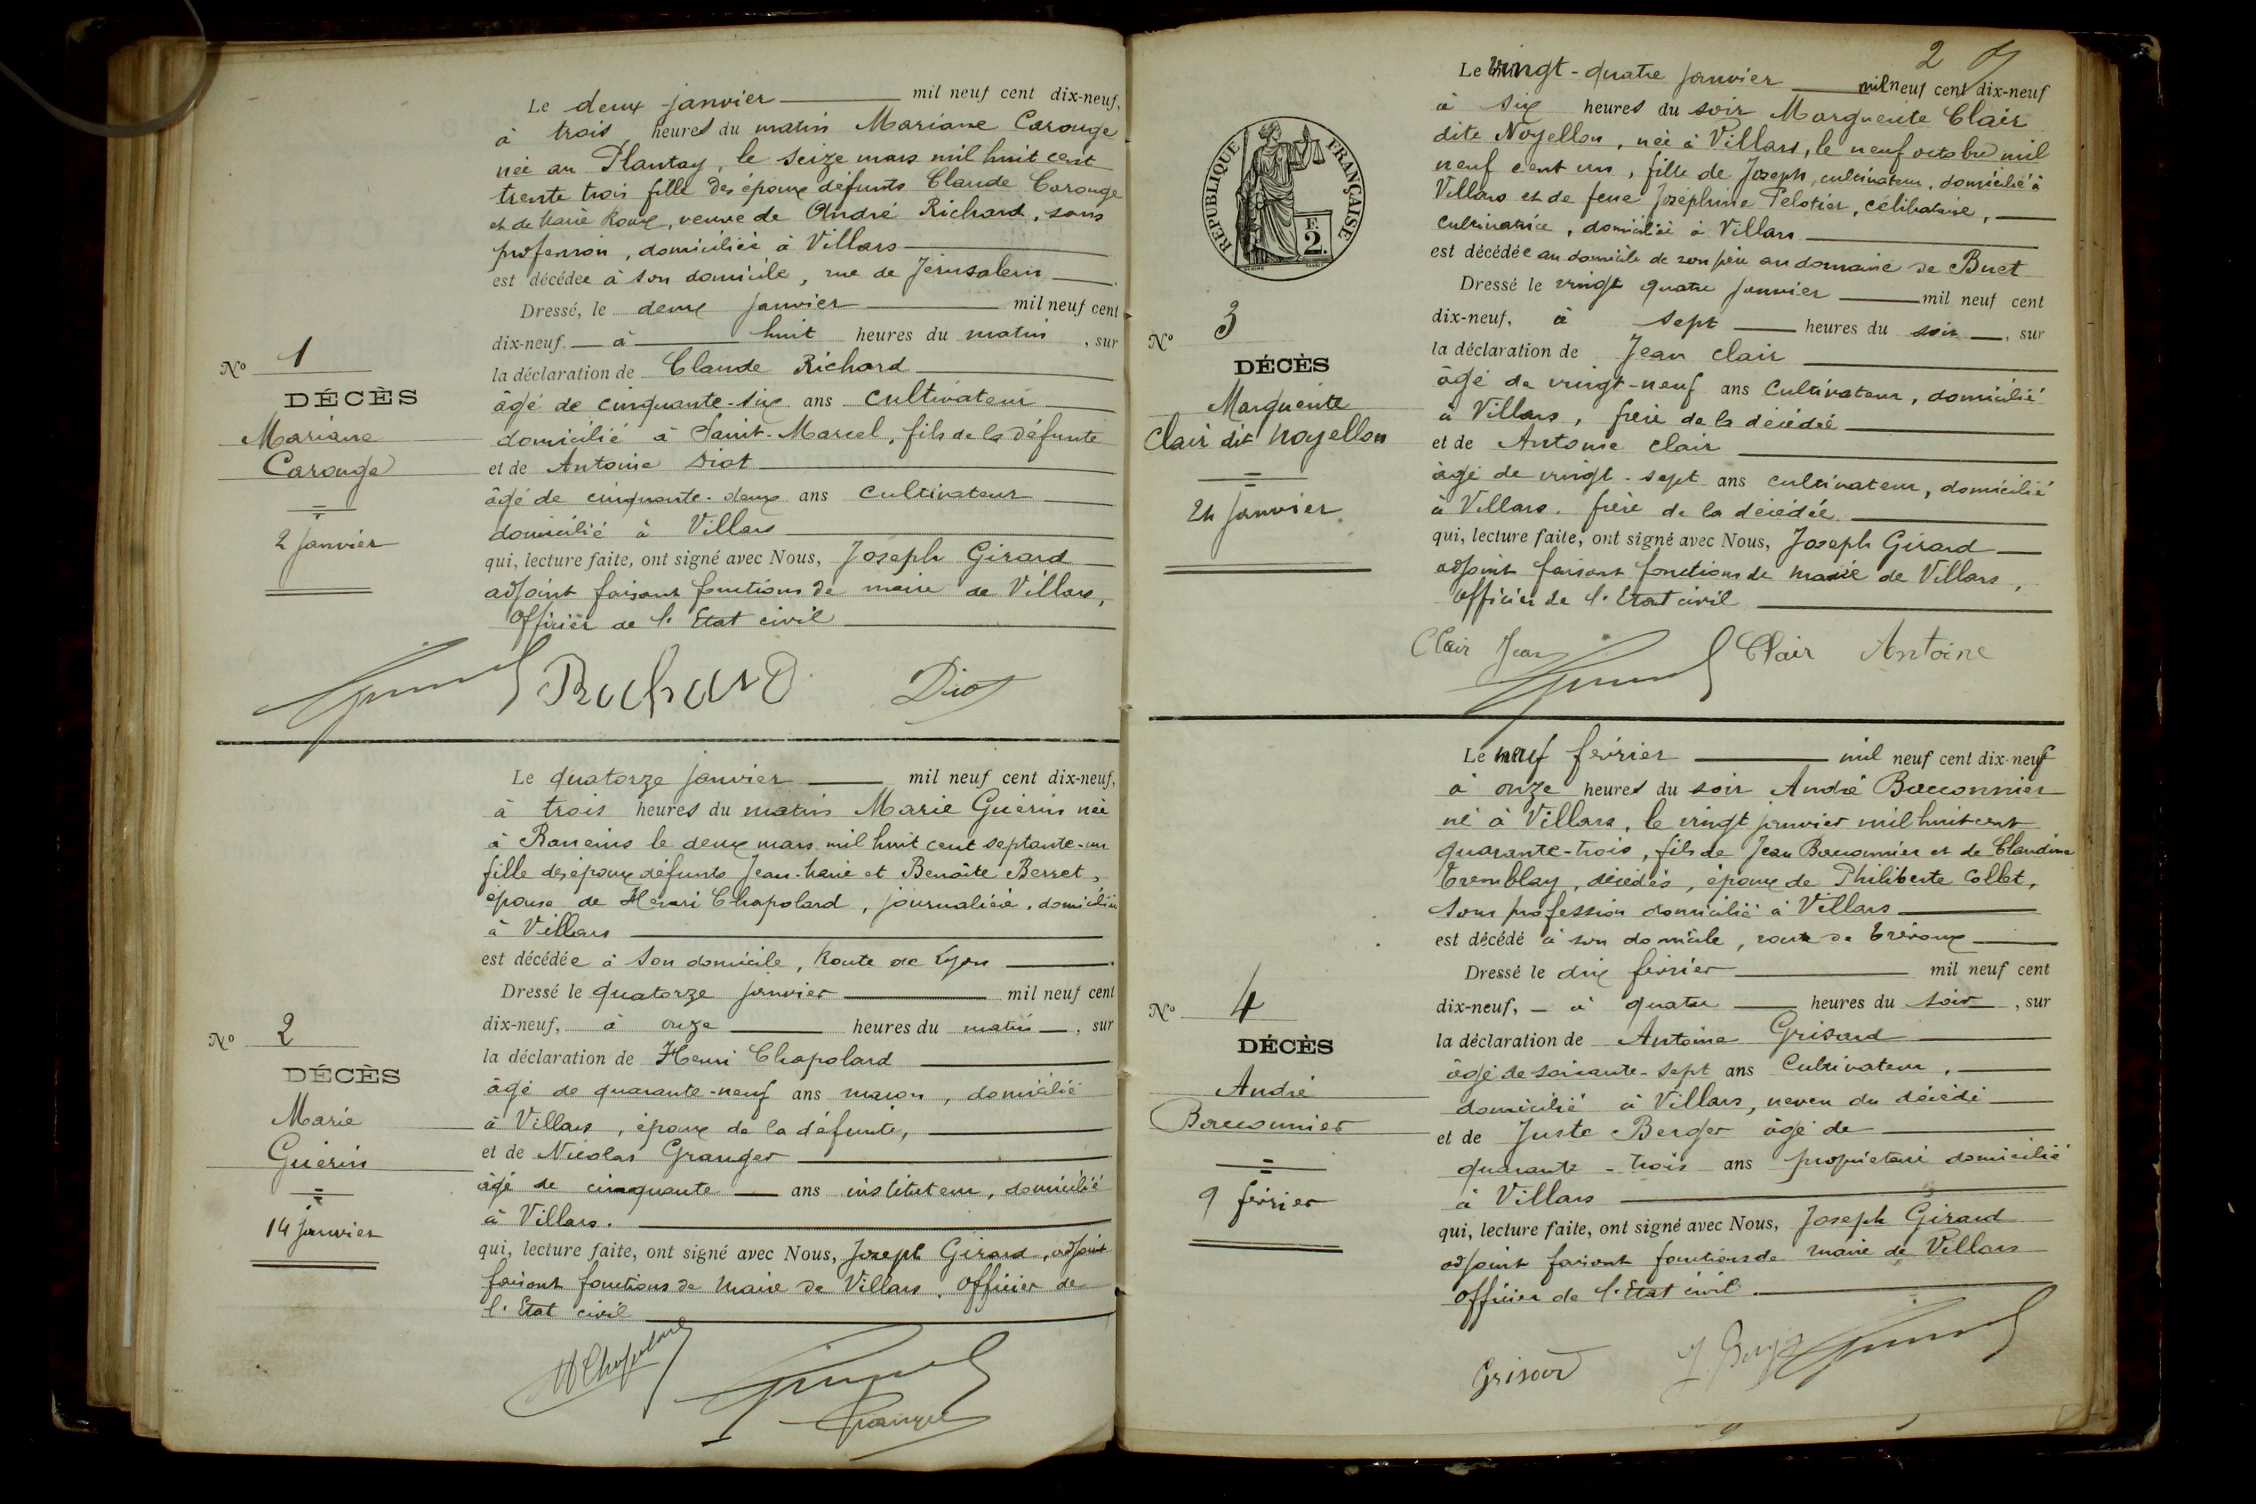 Le deux janvier mil neuf cent dix-neuf,
à trois heures du matin Mariane Carouge
née au Plantay, le seize mars mil huit cent
trente trois fille des époux défunts Claude Carouge
et de Marie Roux, veuve de André Richard, sans
profession, domiciliée à Villars
est décédée à son domicile, rue de Jérusalem
Dressé, le deux janvier mil neuf cent
dix-neuf à huit heures du matin, sur
la déclaration de Claude Richard
âgé de cinquante-six ans cultivateur
domicilié à Saint-Marcel, fils de la défunte
et de Antoine Diot
âgé de cinquante-deux ans cultivateur
domicilié à Villars
qui, lecture faite, ont signé avec Nous, Joseph Girard
adjoint faisant fonctions de maire de Villars,
Officier de l'Etat civil
Nº 1
DÉCÈS
Mariane
Carouge
2 janvier
Richard Diot
Le quatorze janvier mil neuf cent dix-neuf,
à trois heures du matin Marie Guérin née
à Baneins le deux mars mil huit cent septante-un
fille des époux défunts Jean-Marie et Benoîte Berret,
épouse de Henri Chapolard, journalière, domiciliée
à Villars
est décédée à son domicile, Route de Lyon
Dressé le quatorze janvier mil neuf cent
dix-neuf, à onze heures du matin, sur
la déclaration de Henri Chapolard
âgé de quarante-neuf ans maçon, domicilié
à Villars, époux de la défunte,
et de Nicolas Granger
âgé de cinquante ans instituteur, domicilié
à Villars.
qui, lecture faite, ont signé avec Nous, Joseph Girard, adjoint
faisant fonctions de Maire de Villars, Officier de
l'Etat civil
Nº 2
DÉCÈS
Marie
Guérin
14 janvier
H Chapolard
Granger
2
RÉPUBLIQUE FRANÇAISE
E
2
Le vingt-quatre janvier mil neuf cent dix-neuf
à six heures du soir Marguerite Clair
dite Noyellon, née à Villars, le neuf octobre mil
neuf cent un, fille de Joseph, cultivateur, domicilié à
Villars et de feue Joséphine Pelotier, célibataire,
cultivatrice, domiciliée à Villars
est décédée au domicile de son père au domaine de Buet
Dressé le vingt quatre janvier mil neuf cent
dix-neuf, à sept heures du soir, sur
la déclaration de Jean Clair
âgé de vingt-neuf ans cultivateur, domicilié
à Villars, frère de la décédée
et de Antoine Clair
âgé de vingt-sept ans cultivateur, domicilié
à Villars. frère de la décédée.
qui, lecture faite, ont signé avec Nous, Joseph Girard
adjoint faisant fonctions de Maire de Villars,
officier de l'Etat civil
Nº 3
DÉCÈS
Marguerite
Clair dit Noyellon
24 janvier
Clair Jean Clair Antoine
Le neuf février mil neuf cent dix-neuf
à onze heures du soir André Bouconnier
né à Villars, le vingt janvier mil huit cent
quarante-trois, fils de Jean Bouconnier et de Claudine
Tremblay, décédés, époux de Philiberte Collet,
sans profession domicilié à Villars
est décédé à son domicile, route de Trévoux
Dressé le dix février mil neuf cent
dix-neuf, à quatre heures du soir, sur
la déclaration de Antoine Grisard
âgé de soixante-sept ans cultivateur,
domicilié à Villars, neveu du décédé
et de Juste Berger âgé de
quarante-trois ans propriétaire domicilié
à Villars
qui, lecture faite, ont signé avec Nous, Joseph Girard
adjoint faisant fonctions de Maire de Villars
officier de l'Etat civil
Nº 4
DÉCÈS
André
Bouconnier
9 février
Grisard